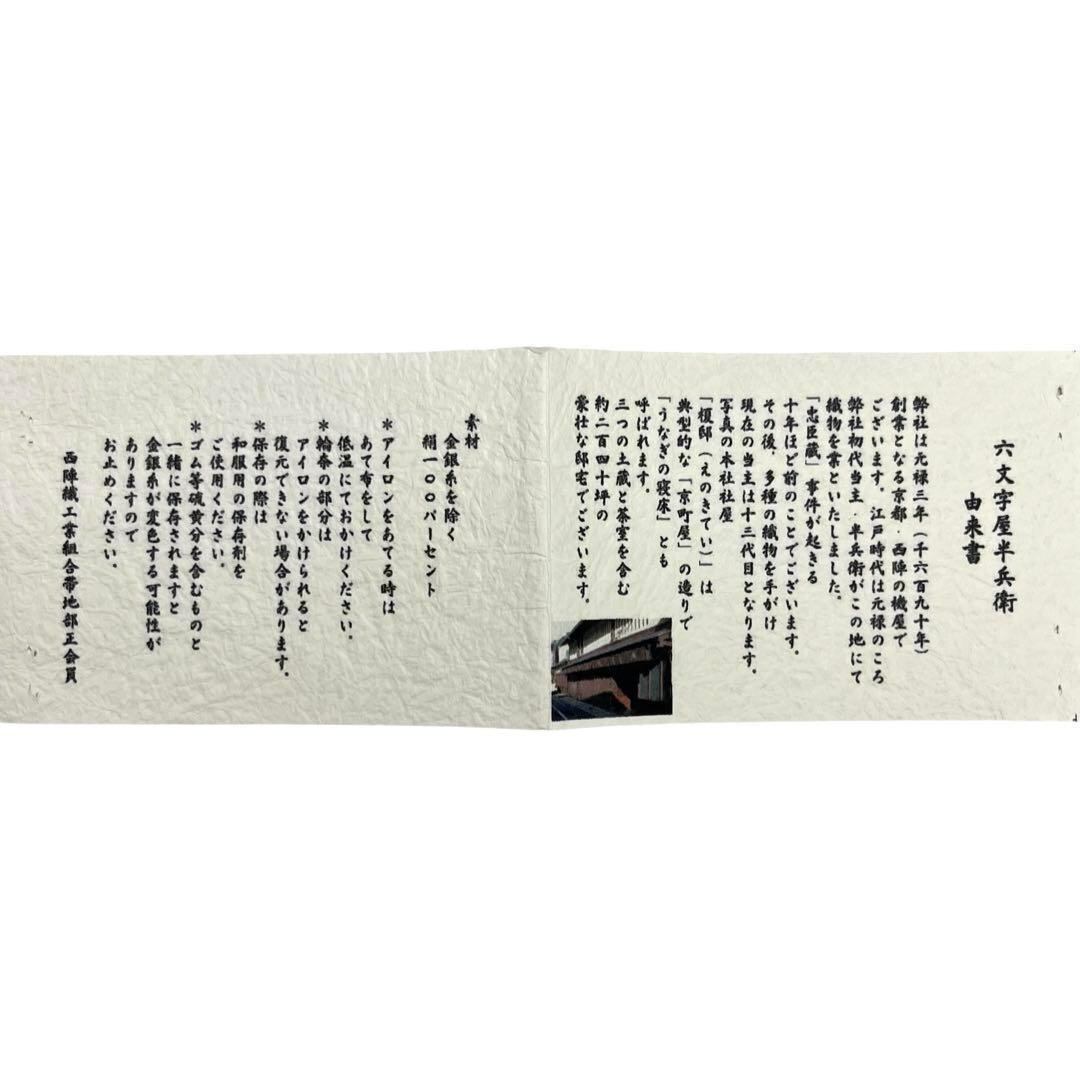 六文字屋半兵衛
由来書
弊社は元禄三年（千六百九十年）
創業となる京都・西陣の機屋で
ございます。江戸時代は元禄のころ
弊社初代当主・半兵衛がこの地にて
織物を業といたしました。
「忠臣蔵」事件が起きる
十年ほど前のことでございます。
その後、多種の織物を手がけ
現在の当主は十三代目となります。
写真の本社社屋
「榎邸（えのきてい）」は
典型的な「京町屋」の造りで
「うなぎの寝床」とも
呼ばれます。
三つの土蔵と茶室を含む
約二百四十坪の
豪壮な邸宅でございます。
素材
金銀糸を除く
絹一〇〇パーセント
＊アイロンをあてる時は
あて布をして
低温にておかけください。
＊輪奈の部分は
アイロンをかけられると
復元できない場合があります。
＊保存の際は
和服用の保存剤を
ご使用ください。
＊ゴム等硫黄分を含むものと
一緒に保存されますと
金銀糸が変色する可能性が
ありますので
お止めください。
西陣織工業組合帯地部正会員